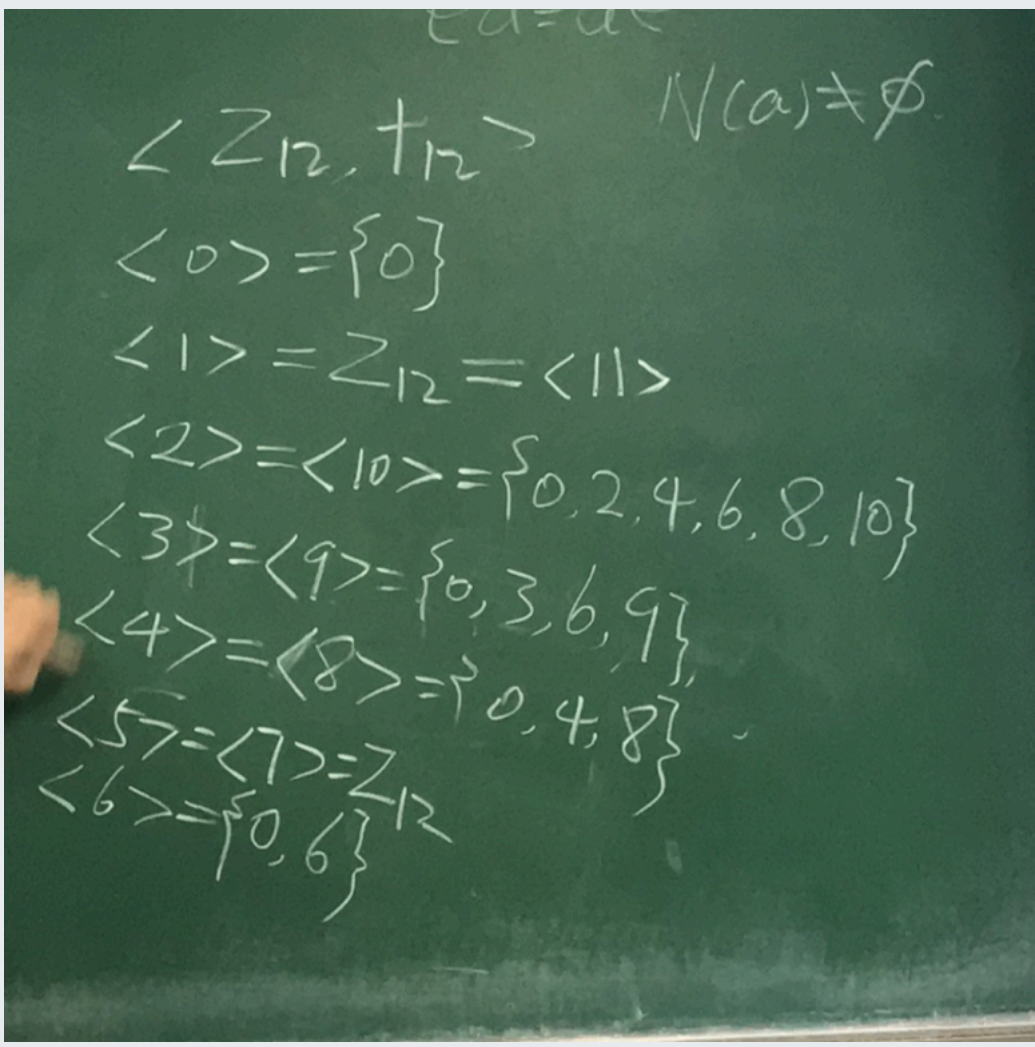 N(a)≠∅.
<Z₁₂, +₁₂>
<0>={0}
<1>=Z₁₂=<11>
<2>=<10>={0,2,4,6,8,10}
<3>=<9>={0,3,6,9}
<4>=<8>={0,4,8}
<5>=<7>=Z₁₂
<6>={0,6}